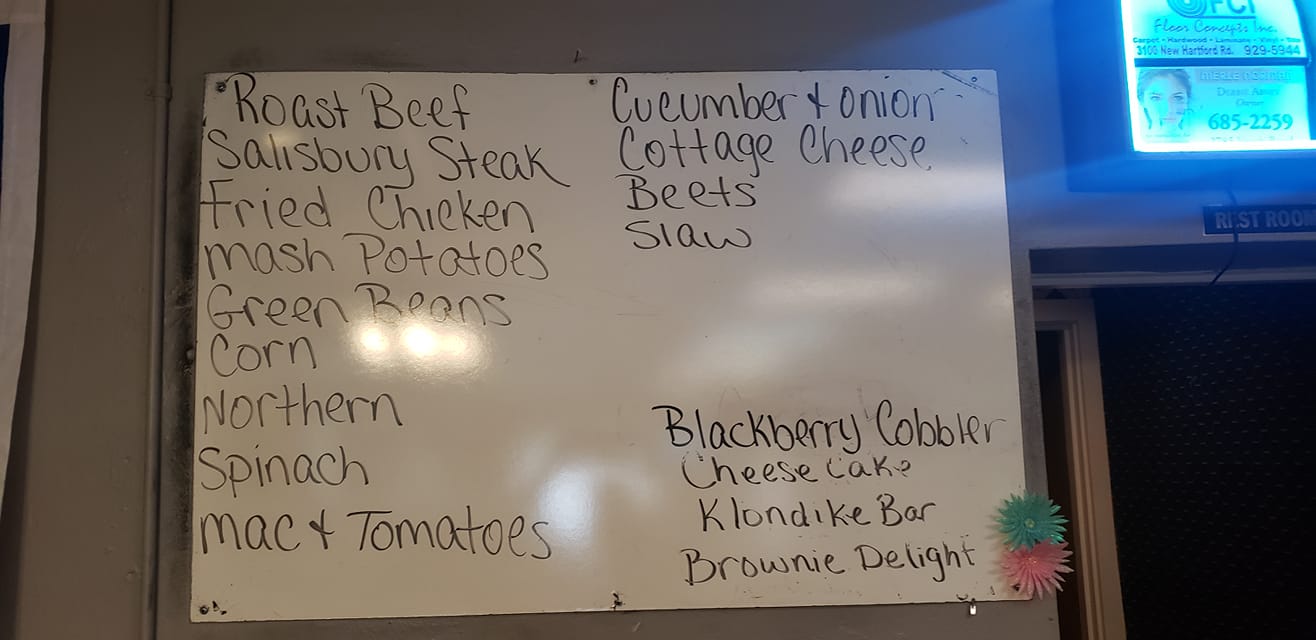 Roast Beef
Salisbury Steak
Fried Chicken
mash Potatoes
Green Beans
Corn
Northern
Spinach
mac & Tomatoes
Cucumber & onion
Cottage Cheese
Beets
Slaw
Blackberry Cobbler
Cheese Cake
Klondike Bar
Brownie Delight
FCI
Floor Concepts Inc.
Carpet • Hardwood • Laminate • Vinyl • Tile
3100 New Hartford Rd. 929-5944
MERLE NORMAN
Owner
685-2259
REST ROOM